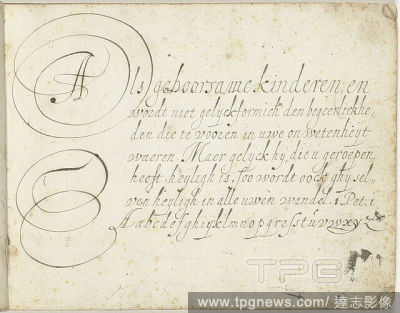 Als gehoorsame kinderen, en
wordt niet gelyckformich den begeerlickhe„
den die te vooren in uwe onwetenheyt
waeren. Maer gelyck hy, die u geroepen
heeft heyligh is, soo wordt oock ghy sel„
ven heyligh in alle uwen wandel. 1 Pet. 1
A a b c d e f g h i y k l m n o p q r e s s t u v w x y
TPG
www.tpgnews.com / 達志影像